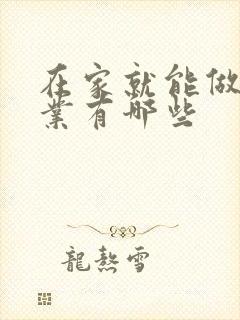 在家就能做
业有哪些
龍熱雪